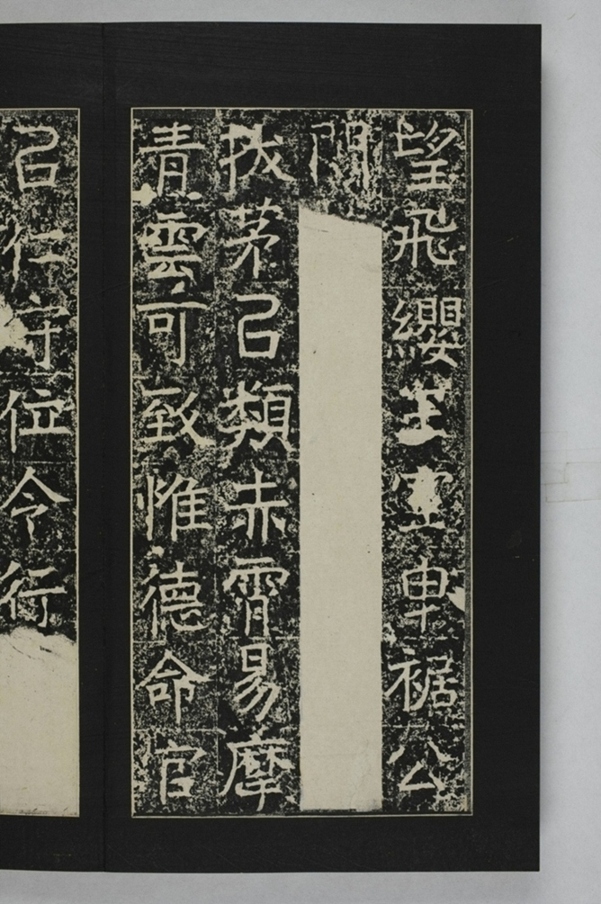 望飛纓王室曳裾公
拔茅㠯類赤霄易摩
青雲可致惟德命官
㠯仁守位令行